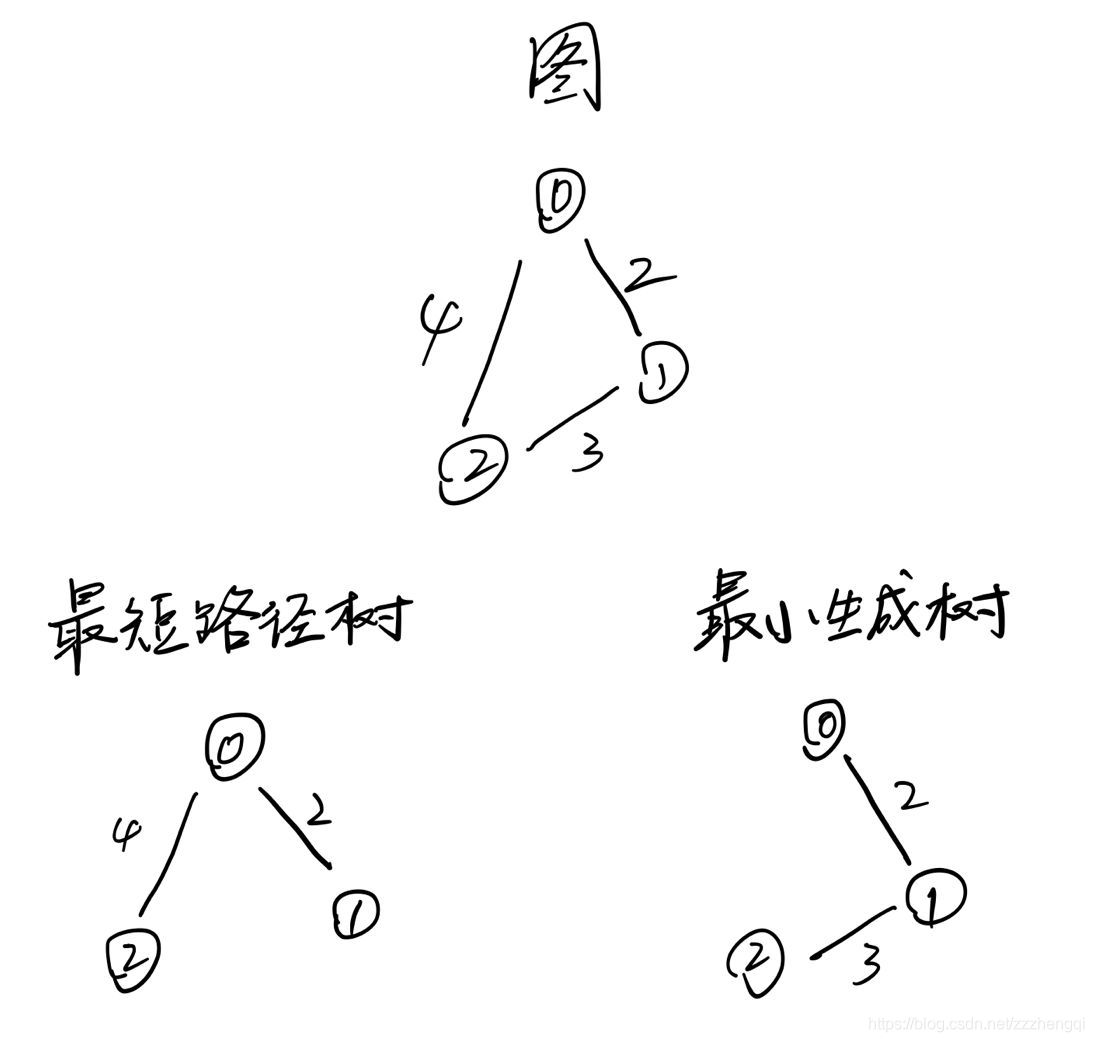 图
0
4
2
1
2
3
最短路径树
最小生成树
0
0
4
2
2
1
2
1
2
3
https://blog.csdn.net/zzzhengqi